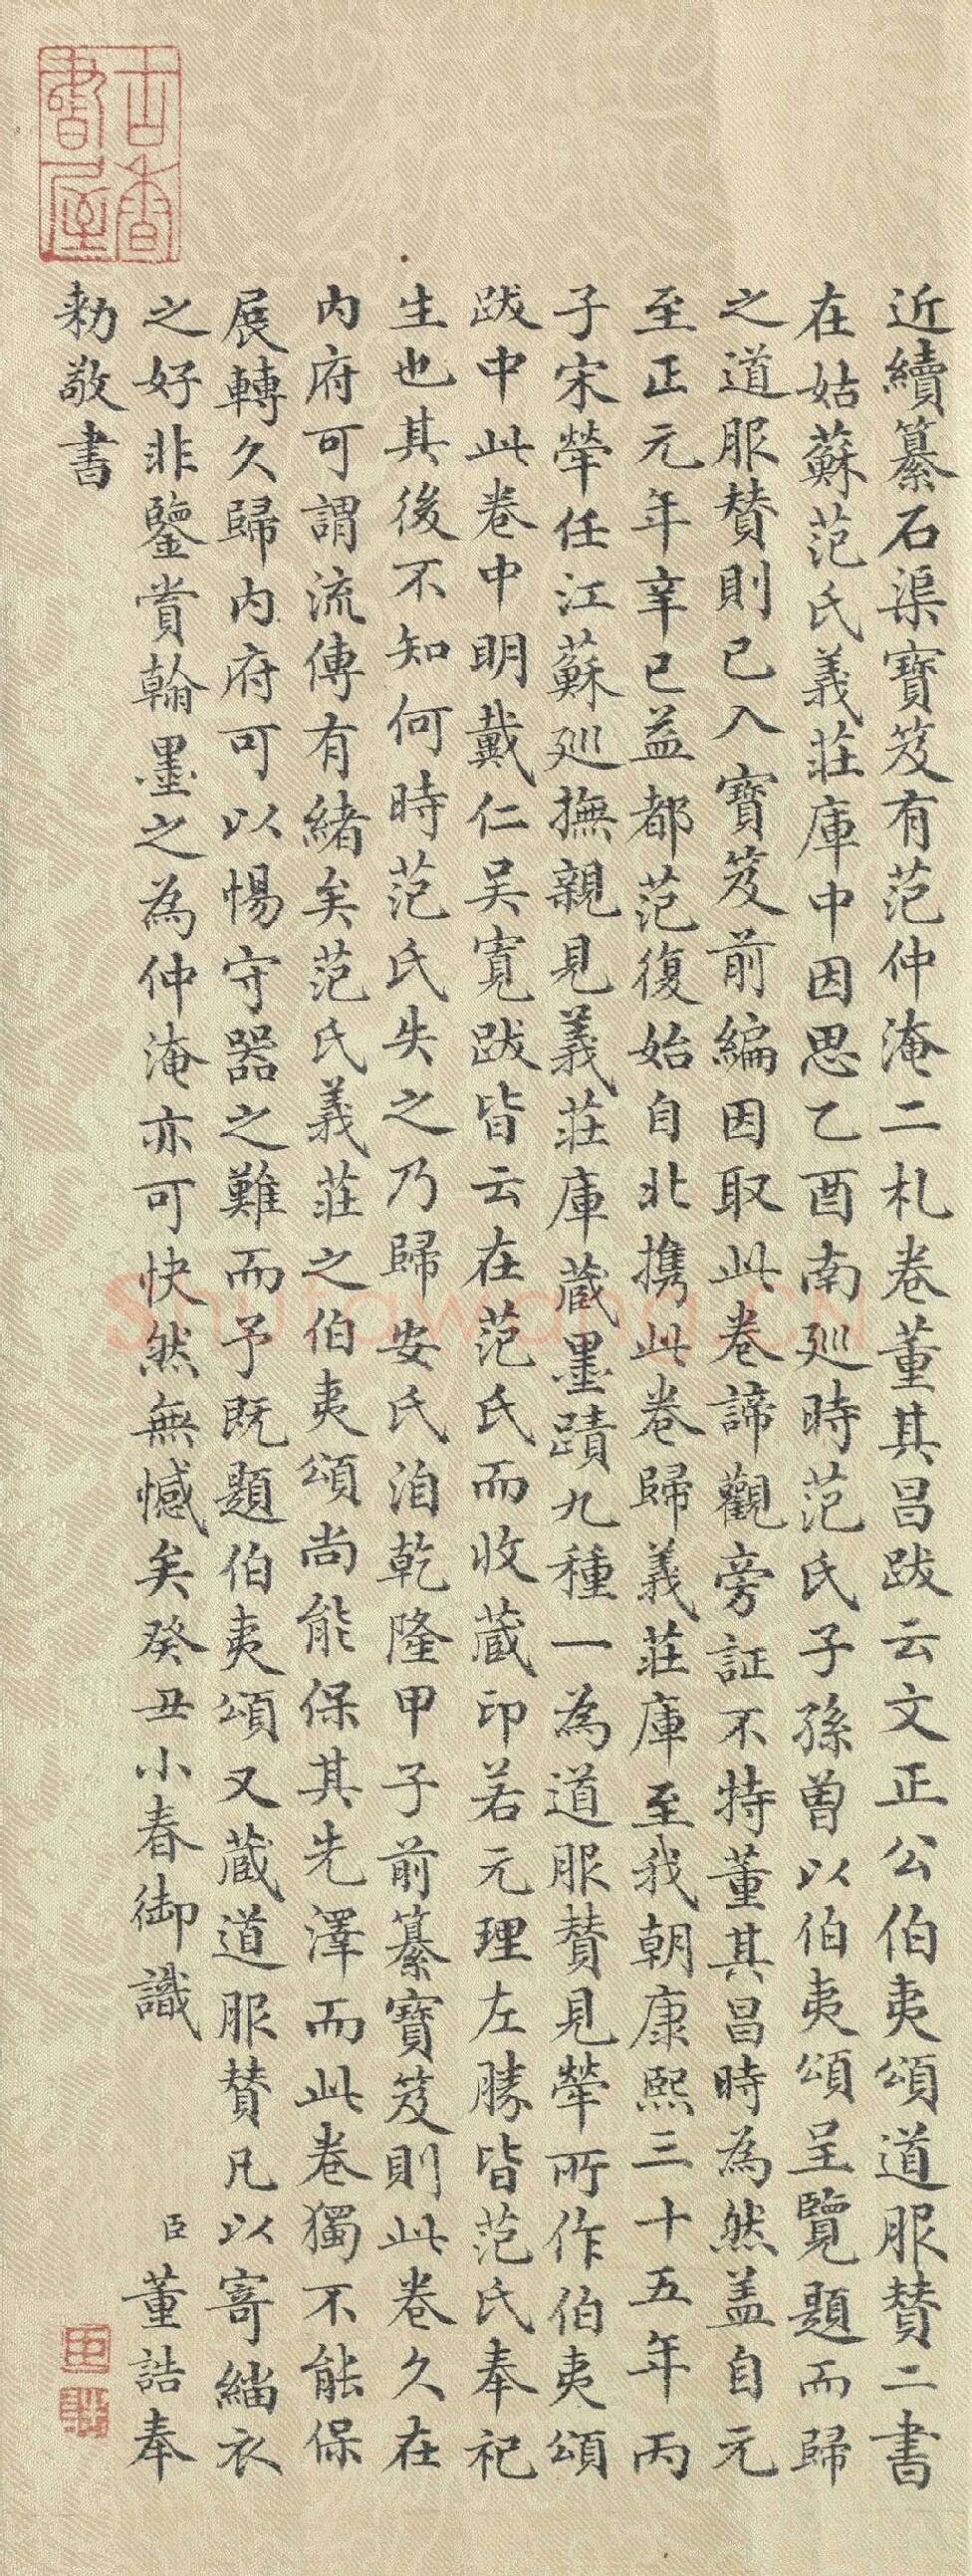 近續纂石渠寶笈有范仲淹二札卷董其昌跋云文正公伯夷頌道服贊二書
在姑蘇范氏義莊庫中因思乙酉南廵時范氏子孫曾以伯夷頌呈覽題而歸
之道服贊則已入寶笈前編因取此卷諦觀旁証不特董其昌時為然盖自元
至正元年辛巳益都范復始自北携此卷歸義莊庫至我朝康熙三十五年丙
子宋犖任江蘇廵撫親見義莊庫蔵墨蹟九種一為道服贊見犖所作伯夷頌
跋中此卷中明戴仁吴寬跋皆云在范氏而收蔵印若元理左滕皆范氏奉祀
生也其後不知何時范氏失之乃歸安氏洎乾隆甲子前纂寶笈則此卷久在
内府可謂流傳有緒矣范氏義莊之伯夷頌尚能保其先澤而此卷獨不能保
展轉久歸内府可以惕守器之難而予既題伯夷頌又蔵道服贊凡以寄緇衣
之好非鑒賞翰墨之為仲淹亦可快然無憾矣癸丑小春御識 臣董誥奉
勑敬書
古香書屋
Shufawang.CN